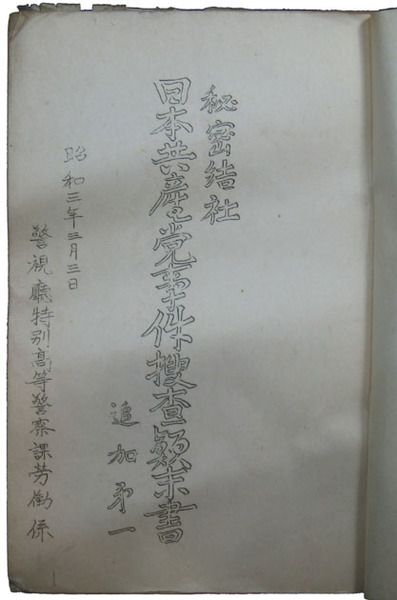 秘密結社
日本共産党事件捜査顛末書
追加第一
昭和三年三月三日
警視廳特別高等警察課労働係